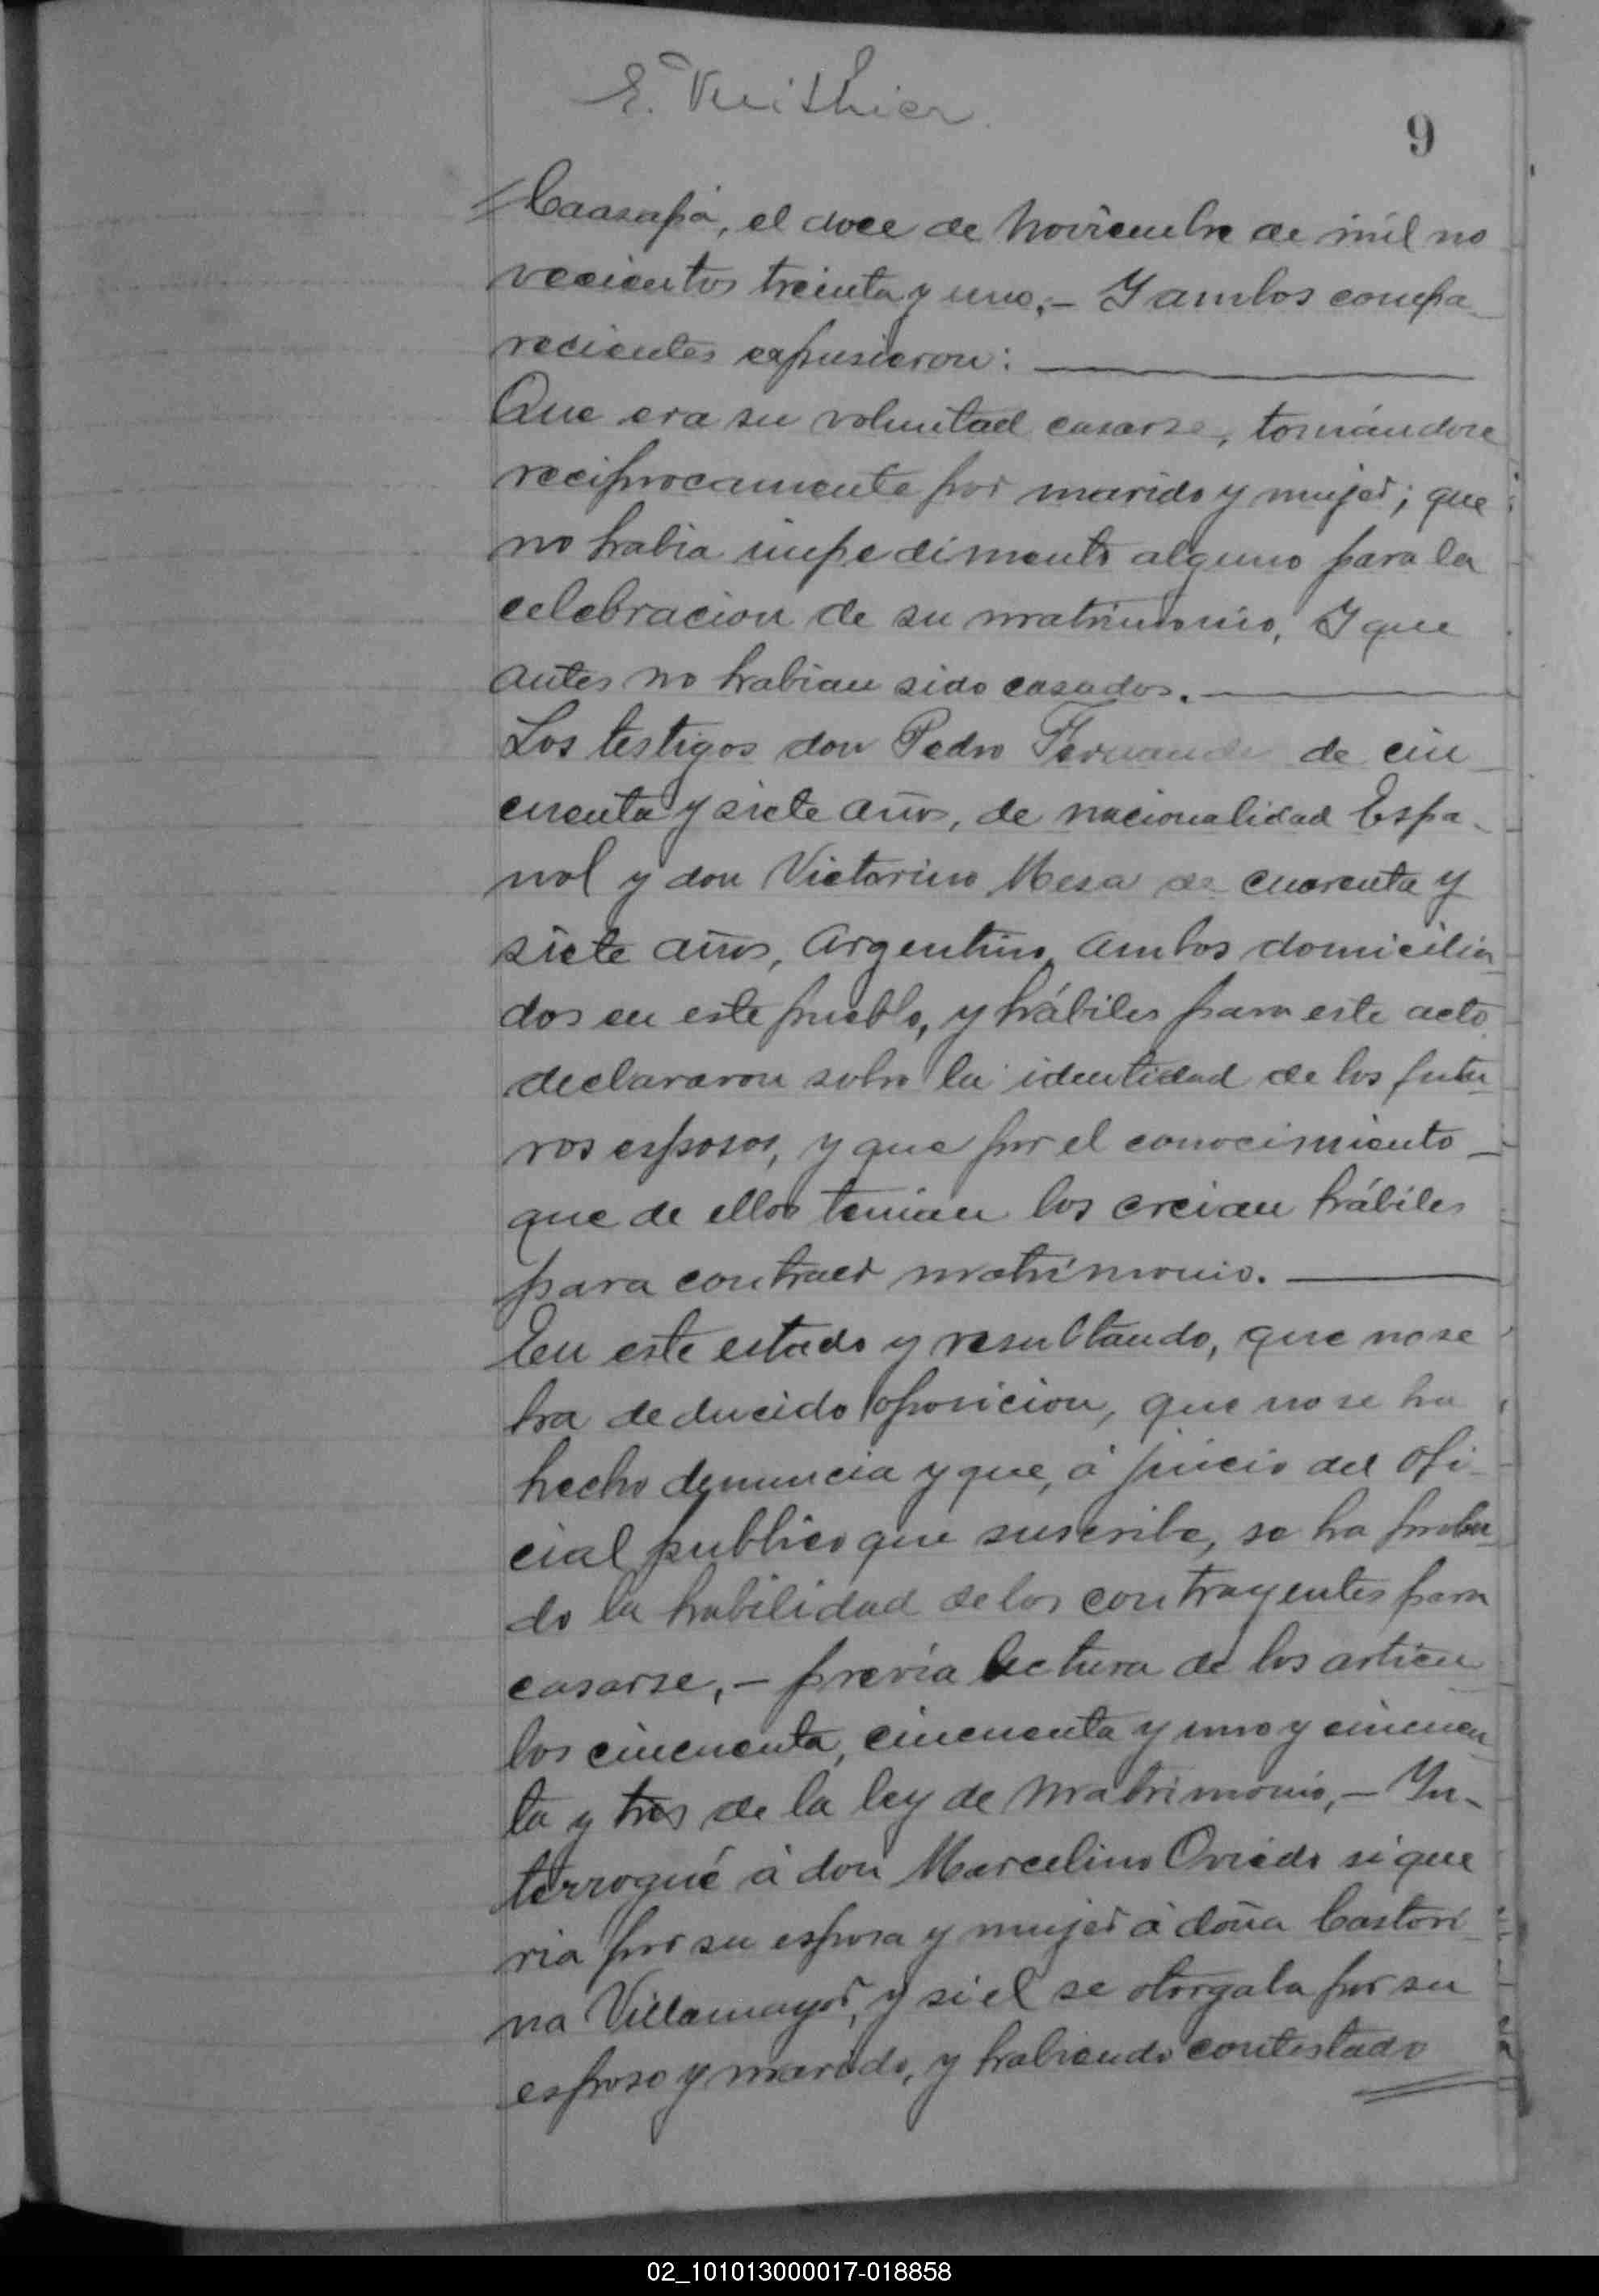 E. Vuithier
9
Caazapá, el doce de Noviembre de mil no
vecientos treinta y uno,- Y ambos compa
recientes expusieron:
Que era su voluntad casarse, tomándose
reciprocamente por marido y mujer; que
no habia impedimento alguno para la
celebracion de su matrimonio, Y que
antes no habian sido casados.
Los testigos don Pedro Fernande de cin
cuenta y siete años, de nacionalidad Espa-
nol y don Victorino Mesa de cuarenta y
siete años, Argentino, ambos domicilia
dos en este pueblo, y hábiles para este acto
declararon sobre la identidad de los futu
ros esposos, y que por el conocimiento
que de ellos tenian los creian hábiles
para contraer matrimonio.
En este estado y resultando, que no se
ha deducido oposicion, que no se ha
hecho denuncia y que, á juicio del ofi
cial publico que suscribe, se ha proba
do la habilidad de los contrayentes para
casarse,- previa lectura de los articu
los cincuenta, cincuenta y uno y cincuen
ta y tres de la ley de Matrimonio,- In-
terrogué á don Marcelino Oviedo si que
ria por su esposa y mujer á doña Castori
na Villamayor, y si el se otorgaba por su
esposo y marido, y habiendo contestado
02_101013000017-018858